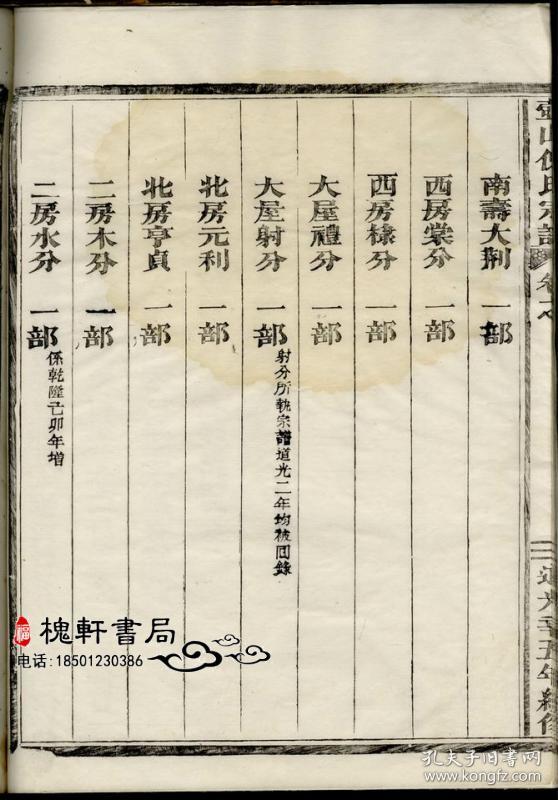 南壽大荆 一部
西房棠分 一部
西房棣分 一部
大屋禮分 一部
大屋射分 一部 射分所執宗譜道光二年均被回錄
北房元利 一部
北房亨貞 一部
二房木分 一部
二房水分 一部 係乾隆己卯年增
氏宗譜 卷
道光 五年續修
福 槐軒書局
电话:18501230386
孔夫子旧书网
www.kongfz.com